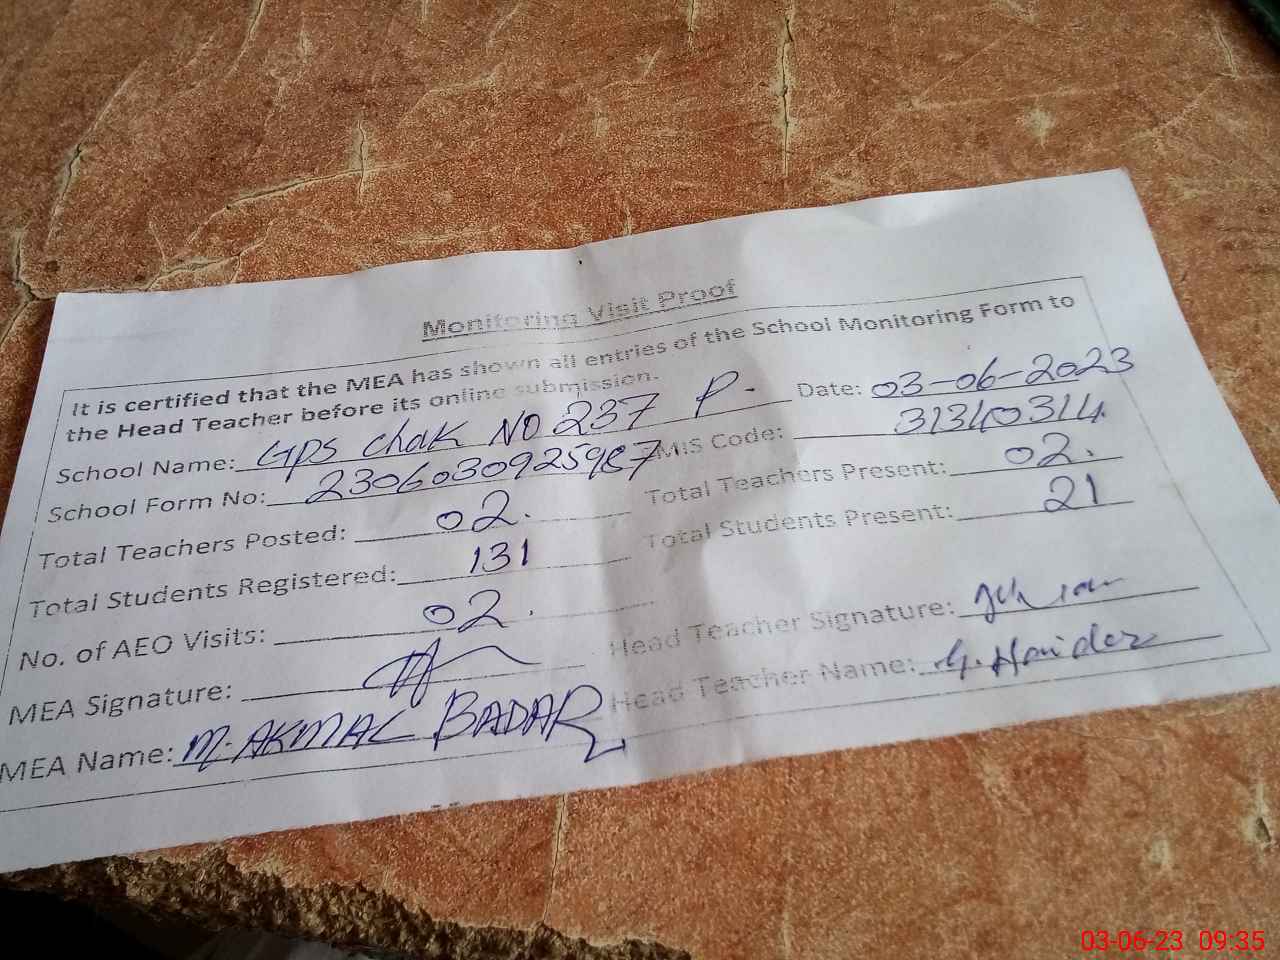 Monitoring Visit Proof
It is certified that the MEA has shown all entries of the School Monitoring Form to
the Head Teacher before its online submission.
School Name: GPS Chak NO 237 P. Date: 03-06-2023
School Form No: 2306030925987 EMIS Code: 31340314
Total Teachers Posted: 02. Total Teachers Present: 02.
Total Students Registered: 131 Total Students Present: 21
No. of AEO Visits: 02.
MEA Signature: Head Teacher Signature:
MEA Name: M. AKMAL BADAR Head Teacher Name: G. Haider
03-06-23 09:35